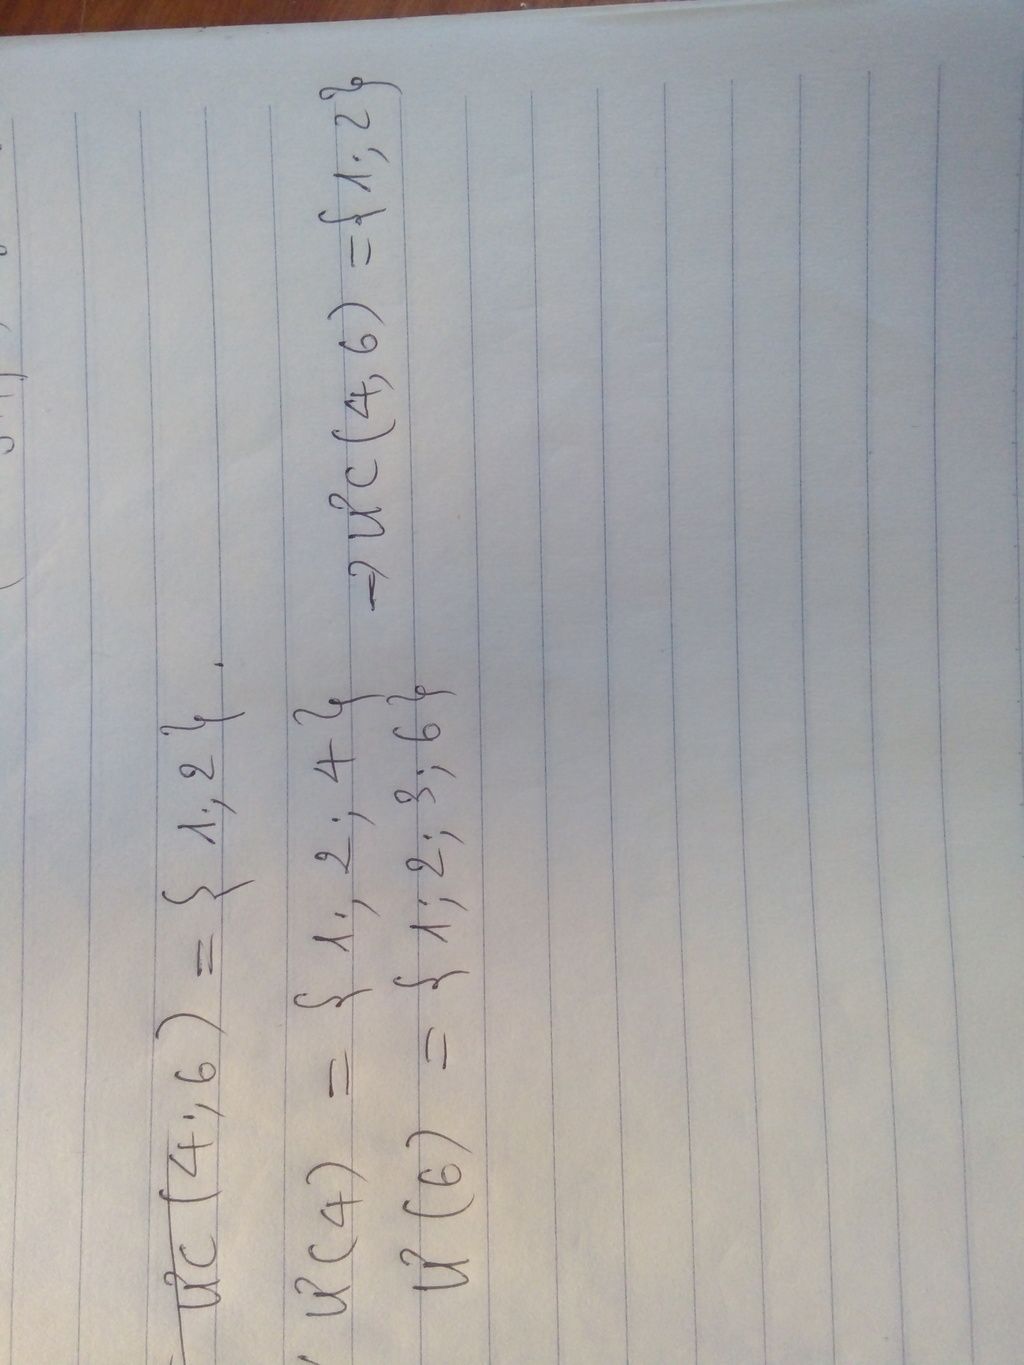 ƯC(4;6) = {1;2}.
Ư(4) = {1;2;4}
→ ƯC(4,6) = {1;2}
Ư(6) = {1;2;3;6}